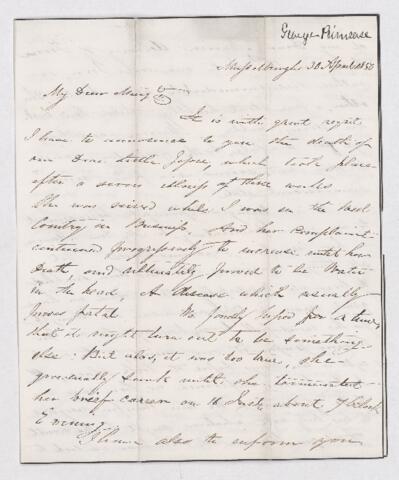 George Primrose
Musselburgh 30 April 1853
My Dear
It is with great regret
I have to announce to you the death of
our Dear little Joyce, which took place
after a severe illness of three weeks
She was seized while I was in the West
Country on Business, And her complaint
continued progressively to increase until her
Death, and ultimately proved to be Water
in the head, A disease which usually
proves fatal We fondly hoped for a time,
that it might turn out to be something
else: But alas, it was too true, she
gradually sunk until she terminated
her brief career on 16 Inst. about 7 oClock
Evening.
I have also to inform you